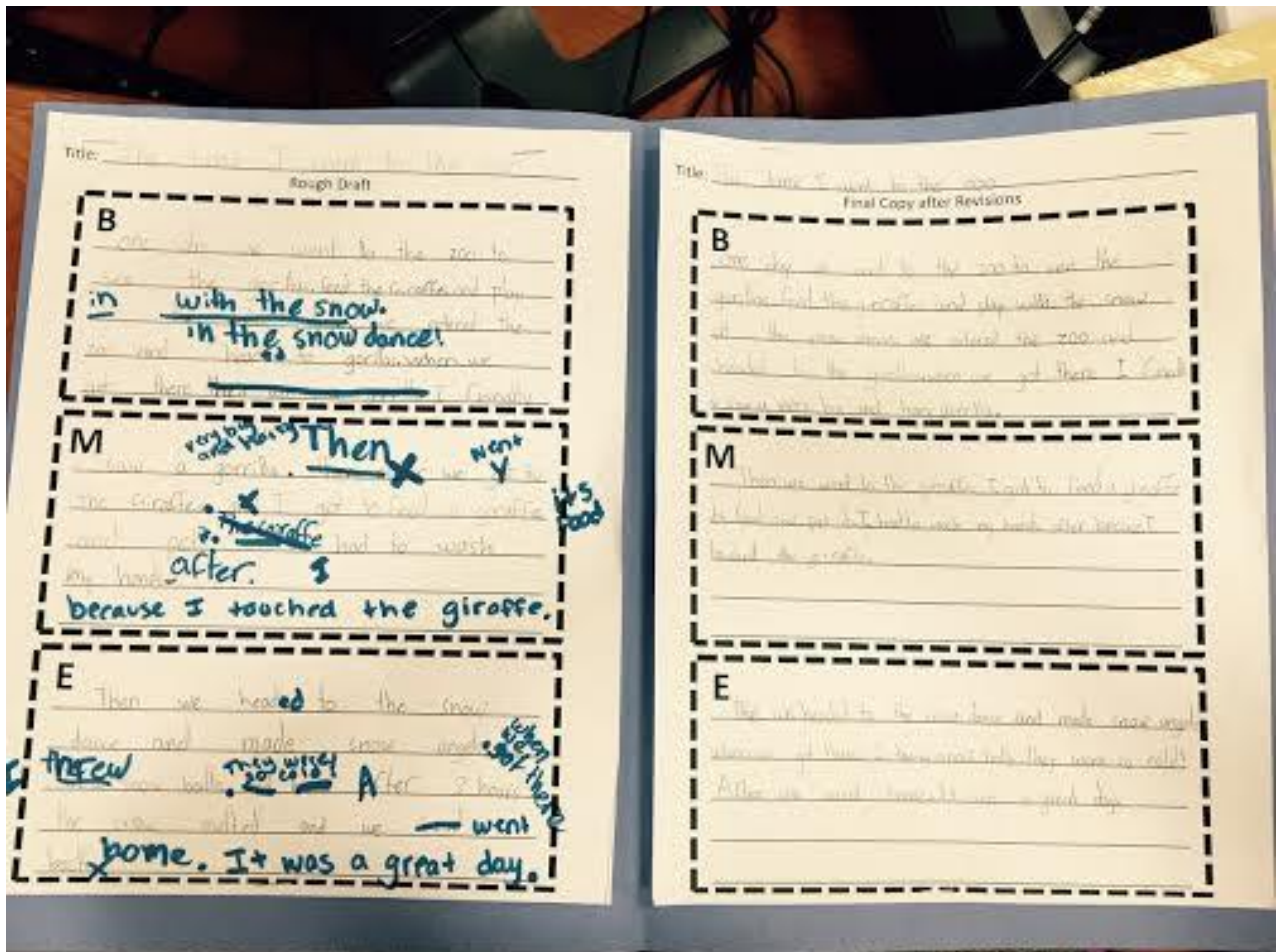 Title: The time I went to the zoo
Rough Draft
B
one day we went to the zoo to
see the gorillas, feed the giraffe and play
in with the snow.
in the snow dance! entered the
zoo and headed to gorilla. when we
got there I finally
M
very big and hairy Then went
saw a gorrilla. we
the giraffe. I got to feed a giraffe its food
and pet the giraffe had to wash
my hands after. I
because I touched the giraffe.
E
Then we headed to the snow
dance and made snow angels. when we got there
I threw snow balls. They were so cold! After 2 hours
the snow melted and we went
home. It was a great day.
Title: The time I went to the zoo
Final Copy after Revisions
B
One day we went to the zoo to see the
gorillas feed the giraffe and play with the snow
at the snow dance we entered the zoo and
headed to the gorillas when we got there I finally
saw a very big and hairy gorrilla.
M
Then we went to the giraffe. I got to feed a giraffe
its food and pet it. I had to wash my hands after because I
touched the giraffe.
E
The we headed to the snow dance and made snow angel
when we got there I threw snow balls they were so cold!
After we went home it was a great day